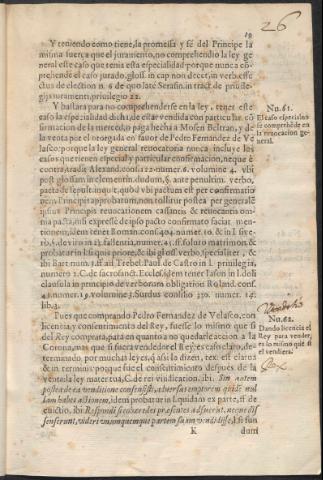 26
19
Y teniendo como tiene, la promessa y fé del Principe la
misma fuerça que el juramento, no comprehendio la ley ge
neral este caso que tenia esta especialidad: porque nunca cõ-
prehende el caso jurado, gloss. in cap non decet, in verb. effe
ctus de election n. 6 de quo late Serafin. in tract. de priuile-
gijs iuramenti, priuilegio 22.
Y bastara para no comprehenderse en la ley, tener este
caso la especialidad dicha, de estar vendida con particular cõ
firmacion de la merced, o paga hecha à Mosen Beltran, y de
la venta por el otorgada en fauor de Pedro Fernandez de Ve
lasco: porque la ley general reuocatoria nunca incluye los
casos que tienen especial y particular confirmacion, ne que è
contra, tradit Alexand. cons. 122. numer. 6. volumine 4. vbi
post glossam in clementin. dudum, §. ante penultim. verbo,
pacta de sepult. inquit, quòd vbi pactum est per confirmatio
nem Principis approbatum, non tollitur postea per generalẽ
ipsius Principis reuocationem cassantis & reuocantis om-
nia pacta, nisi expressè de ipso pacto confirmato faciat men-
tionem, idem tenet Roman. cons. 404. numer. 10. & in l. si ve-
rò. §. de viro in 23. fallentia, numer. 43. ff. soluto matrimon. &
probatur in l. si qui priore, & ibi gloss. verbo, specialiter, &
ibi Bart. num. 3. ff. ad Trebel. Paul. de Castro in l. priuilegia,
numero 2. C. de sacrosanct. Eccles. idem tenet Iason in l. deli
clausula in principio de verborum obligation. Roland. cons.
43. numer. 19. volumine 3. Surdus consilio 370. numer. 14.
lib. 3.
Pues que comprando Pedro Fernandez de Velasco, con
licencia y consentimiento del Rey, fuesse lo mismo que si
del Rey comprara, para en quanto a no quedarle accion a la
Corona, mas que si fuera vendedor el Rey: es caso claro, de-
terminado por muchas leyes, q̃ assi lo dizen, tex. est clarus
& in termin. porque fue el consentimiento despues de la
venta in l. ea mater tua, C. de rei vindication. ibi. Sin autem
postea de ea venditione consensisti, aduersus emptorem quidẽ nul
lam habes actionem, idem probatur in l. quidam ex parte, ff. de
euictio. ibi: Respondi si cohæredes præsentes adfuerint, nec nõ dis
senserint, videri vnumquemque partem suam vendidisse, l. si fun
K dum
Nu. 61.
El caso especial no
se comprehẽde en
la reuocacion ge-
neral.
Nu. 62.
Dando licencia el
Rey para vender,
es lo mismo que si
el vendiera.